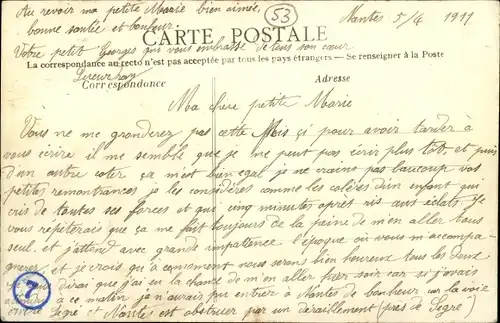 Au revoir ma petite Marie bien aimée,
bonne santée et bonheur.
Votre petit Georges qui vous embrasse de tous son cœur
53
Nantes 5/4 1911
CARTE POSTALE
La correspondance au recto n'est pas acceptée par tous les pays étrangers — Se renseigner à la Poste
Correspondance
Adresse
Ma chère petite Marie
Vous ne me gronderez pas cette fois ci pour avoir tarder à
vous écrire il me semble que je ne peut pas écrir plus tôt, et puis
d'un autre coter ça m'est bien egal je ne crains pas beaucoup vos
petites remontrances je les considères comme les colères d'un enfant qui
cris de toutes ses forces et qui cinq minutes après ris aux éclats. Je
vous repéterais que ça me fait toujours de la peine de m'en aller tous
seul. et j'attend avec grande impatience l'époque où vous m'accompa-
gnerez, et je crois qu'à ce moment nous serons bien heureux tous les deux
dirai que j'ai eu la chance de m'en aller hier soir car si j'avais
attendu à ce matin je n'aurais pu entrer à Nantes de bonheur car la voie
entre Segré et Nantes est obstruer par un déraillement (près de Segré)
7